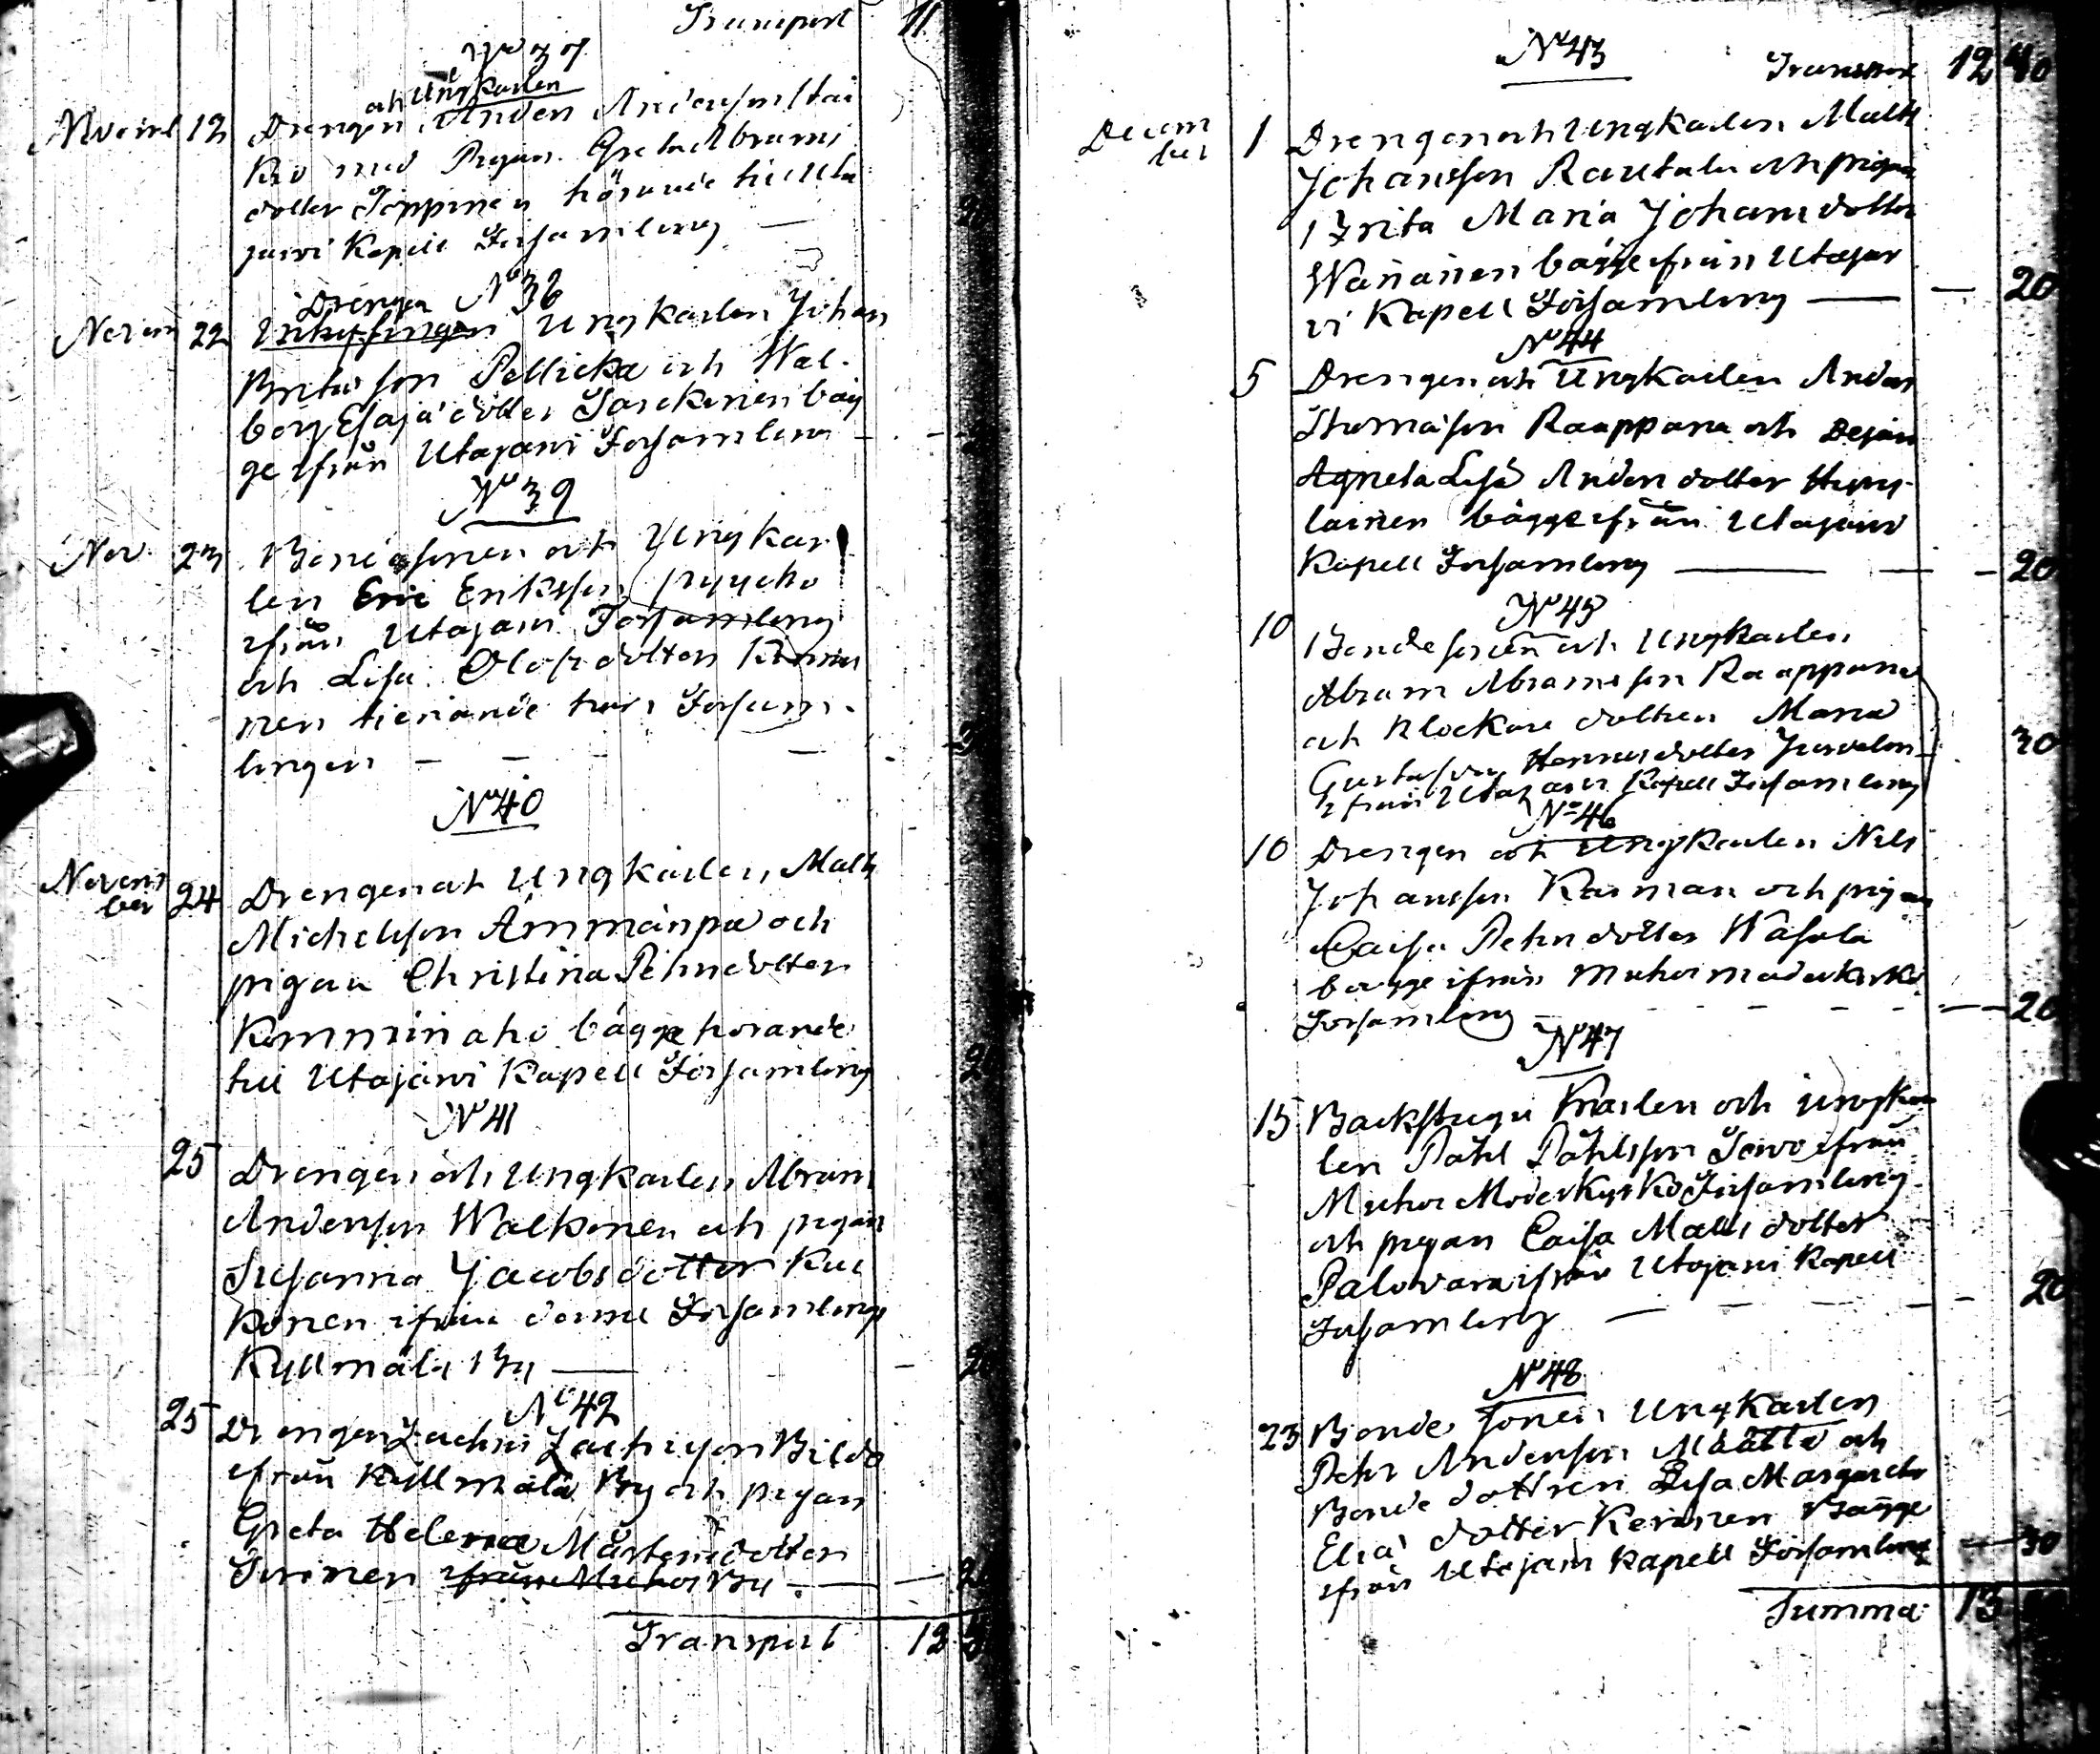 Transport 11
No 37
och Ungkarlen
Novemb 12 Drengen Anders Andersson Kai
ko med Pigan Greta Abrams
dotter Toppinen hörande till Uta
jerwi Kapell Församling —
No 38
Drengen
Novem 22 Ungkarlen Johan
Britas son Pellicka och Wal-
borg Esaja dotter Sarckinen bäg
ge ifrån Utajarwi Församling
No 39
Nov 23 Bondesonen och Ungkar
len Eric Eriksson
ifrån Utajärwi Församling
och Lisa Olofs dotter
nen tienande Försam-
lingen — — — —
No 40
Novem
ber 24 Drengen och Ungkarlen Matts
Michelsson Ämmänpä och
pigan Christina Pehrsdotter
Komminaho bägge hörande
till Utajärwi Kapell Församling 20
No 41
25 Drengen och Ungkarlen Abram
Andersson Walkonen och pigan
Susanna Jacobsdotter Kuc
konen ifrån denne Församlings
Kyllmälä By — 20
No 42
25 Drengen Zachris Zachrisson Bildo
ifrån Kyllmälä By och pigan
Greta Helena Mårtensdotter
ifrån Muhos By — — 20
Transport 12
No 43 Transport 12 40
Decem
ber 1 Drengen och Ungkarlen Matts
Johansson Rautala och pigan
Brita Maria Johansdotter
Wänänen bägge ifrån Utajär
vi Kapell Församling — — 20
No 44
5 Drengen och Ungkarlen Anders
Thomasson Raappana och Dejan
Agneta Lisa Anders dotter
lainen bägge ifrån Utajärwi
Kapell Församling — — 20
No 45
10 Bondesonen och Ungkarlen
Abram Abramsson Raappana
och Klockare dottren Maria
Gustafva Hennersdotter Juvelin 30
ifrån Utajärvi Kapell Församling
No 46
10 Drengen och Ungkarlen Nils
Johansson Karman och pigan
Caisa Pehrsdotter Wäsala
bägge ifrån Muhos moderkyrko
Församling — — — 20
No 47
15 Backstugu Karlen och ungkar
len Påhl Påhlsson Servo ifrån
Muhos Moderkyrko Församling
och pigan Caisa Matts dotter
Palovara ifrån Utajärwi Kapell
Församling — — — 20
No 48
23 Bonde sonen Ungkarlen
Pehr Andersson Määttä och
Bonde dottren Lisa Margareta
Elias dotter Keränen Bägge
ifrån Utajärwi Kapell Församling — 30
Summa 13